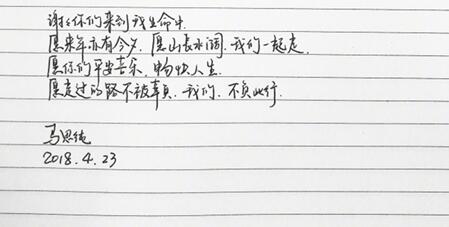 谢谢你们来到我生命中.
愿来年亦有今夕.愿山长水阔.我们一起走.
愿你们平安喜乐.畅快人生.
愿走过的路不被辜负.我们.不负此行.
马思纯
2018.4.23